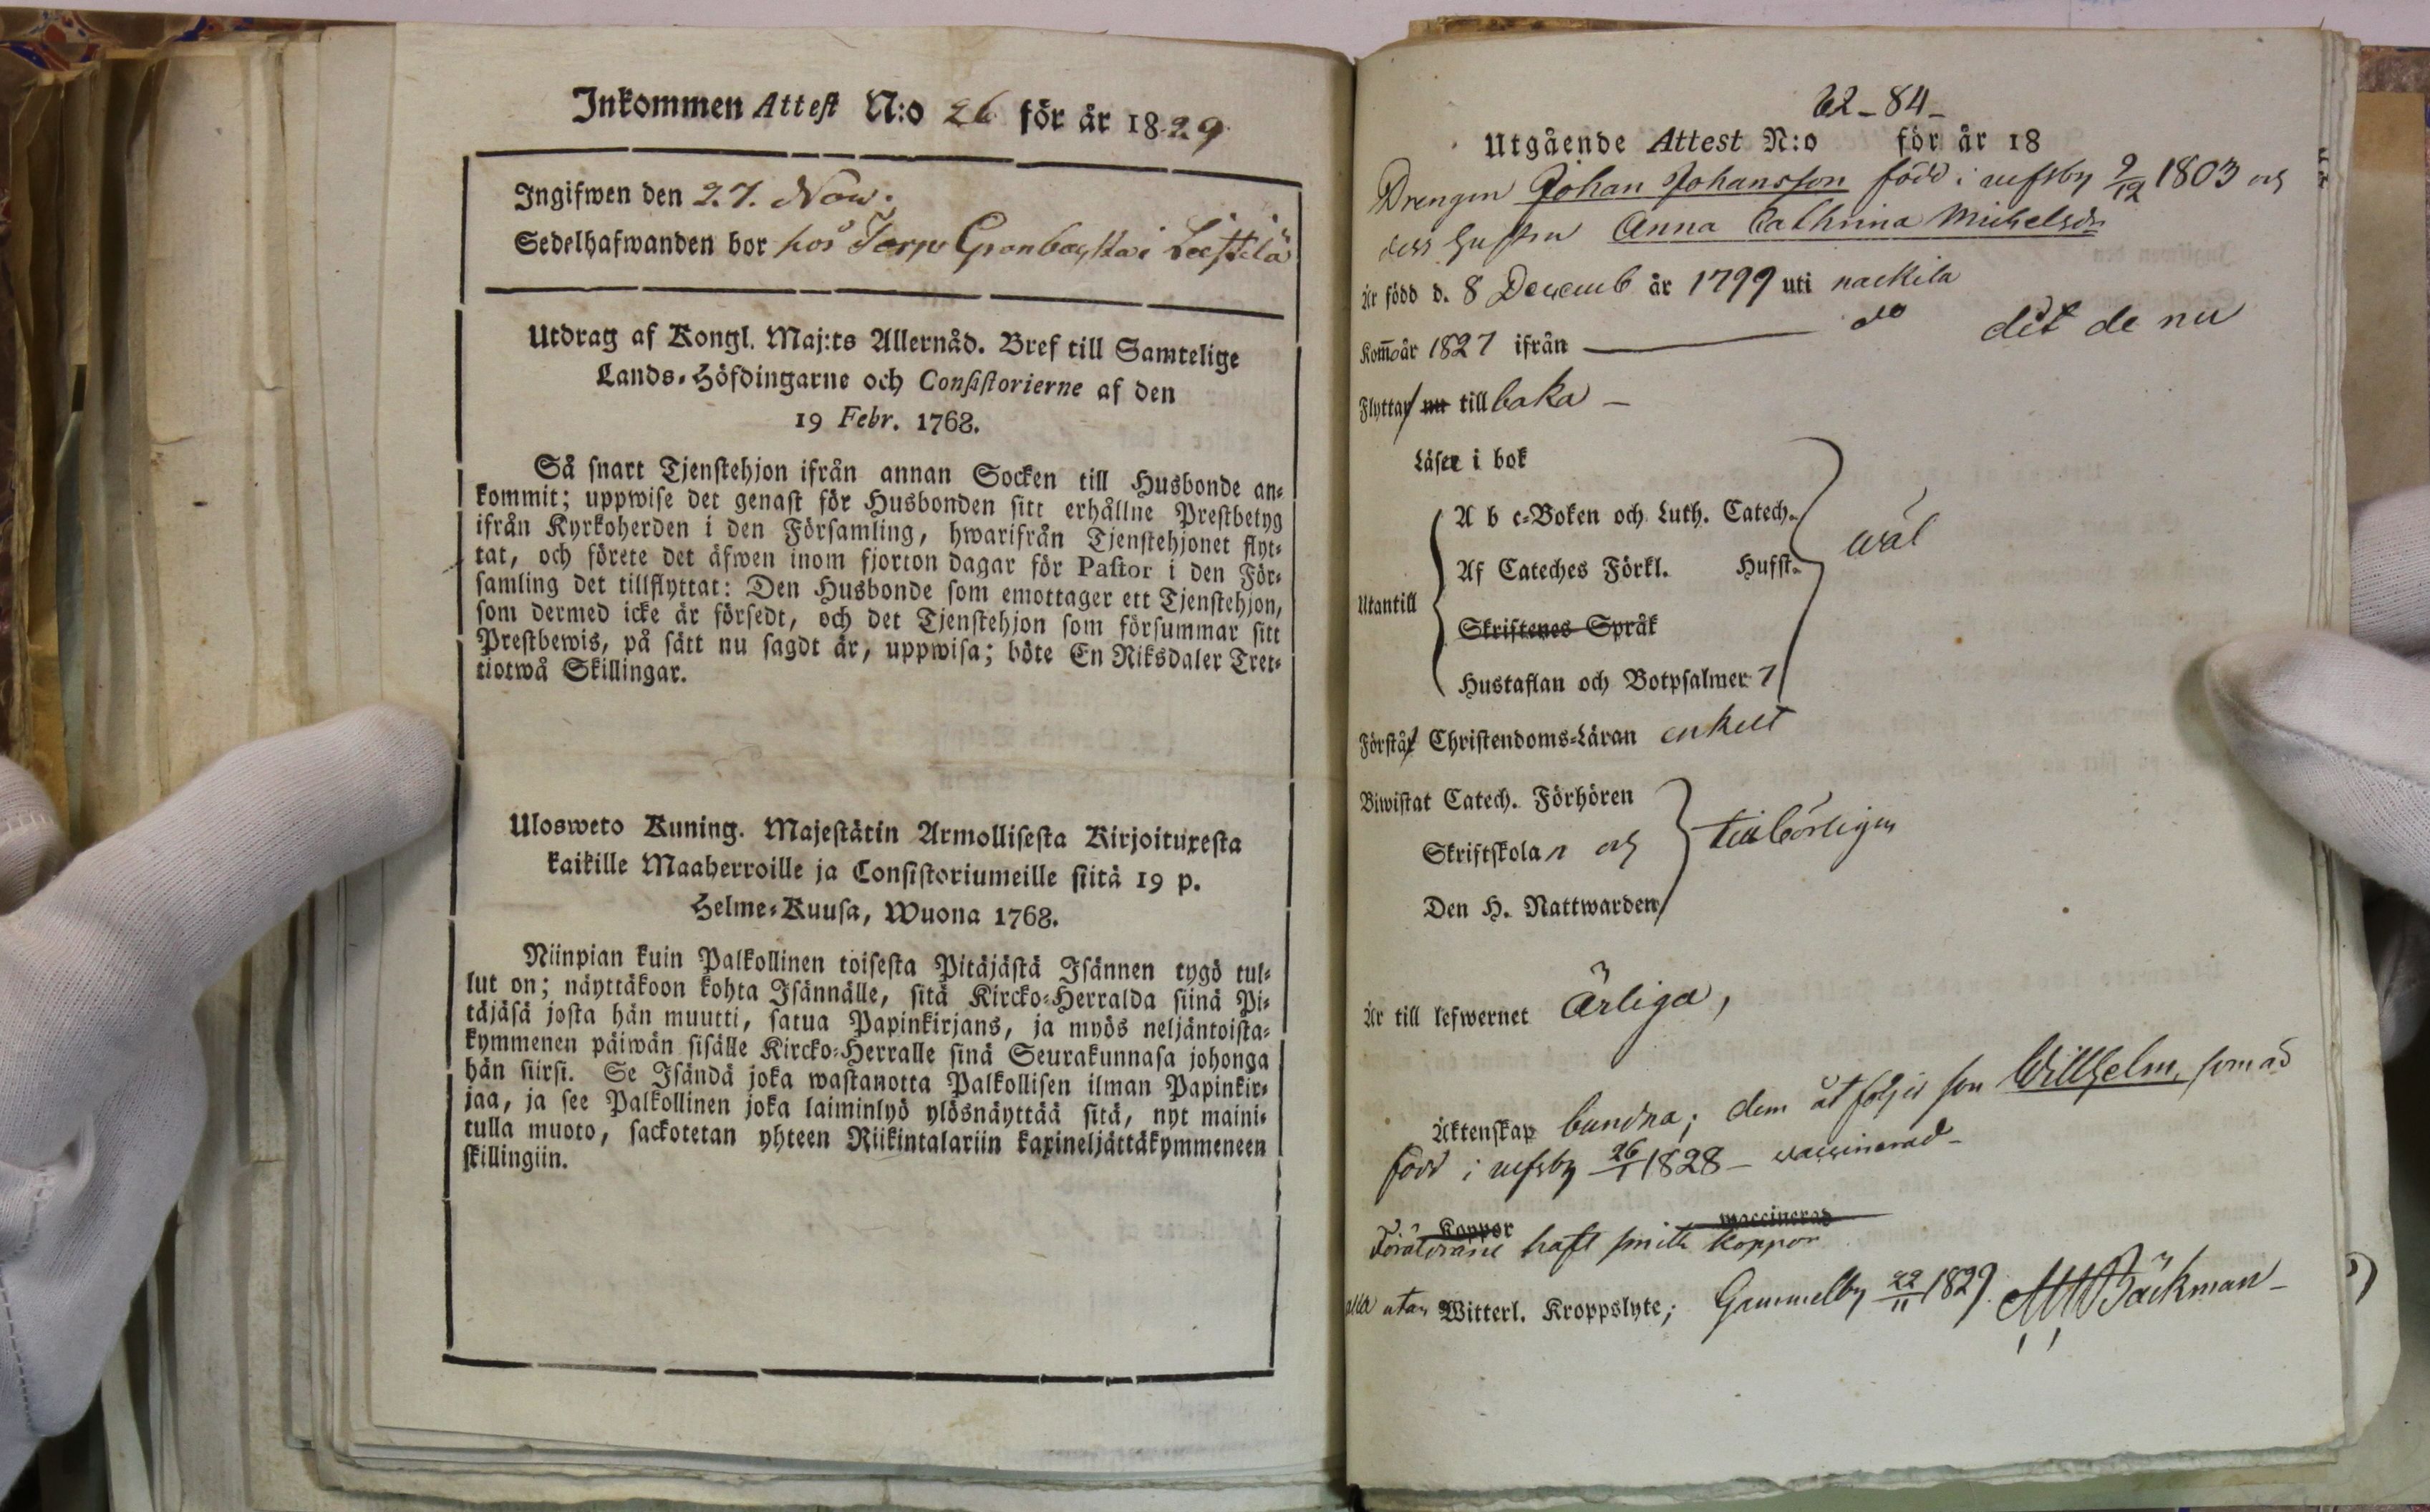 Inkommen Attest N:o 26 för år 1829
Ingifwen den 27. Nov.
Sedelhafwanden bor hos Torp i
Utdrag af Kongl. Maj:ts Allernåd. Bref till Samtelige
Lands-Höfdingarne och Consistorierne af den
19 Febr. 1768.
Så snart Tjenstehjon ifrån annan Socken till Husbonde an-
kommit; uppwise det genast för Husbonden sitt erhållne Prestbetyg
ifrån Kyrkoherden i den Församling, hwarifrån Tjenstehjonet flyt-
tat, och förete det äfwen inom fjorton dagar för Pastor i den För-
samling det tillflyttat: Den Husbonde som emottager ett Tjenstehjon,
som dermed icke är försedt, och det Tjenstehjon som försummar sitt
Prestbewis, på sätt nu sagdt är, uppwisa; böte En Riksdaler Tret-
tiotwå Skillingar.
Ulosweto Kuning. Majestätin Armollisesta Kirjoituxesta
kaikille Maaherroille ja Consistoriumeille siitä 19 p.
Helme-Kuusa, Wuona 1768.
Niinpian kuin Palkollinen toisesta Pitäjästä Isännen tygö tul-
lut on; näyttäkoon kohta Isännälle, sitä Kircko-Herralda siinä Pi-
täjäsä josta hän muutti, satua Papinkirjans, ja myös neljäntoista-
kymmenen päiwän sisälle Kircko-Herralle sinä Seurakunnasa johonga
hän siirsi. Se Isändä joka wastanotta Palkollisen ilman Papinkir-
jaa, ja see Palkollinen joka laiminlyö ylösnäyttää sitä, nyt maini-
tulla muoto, sackotetan yhteen Riikintalariin kaxineljättäkymmeneen
skillingiin.
22-84-
Utgående Attest N:o för år 18
Drengen Johan Johansson född i refsby 9/12 1803 och
dess hustru Anna Cathrina Michelsdr
Är född d. 8 Decemb år 1799 uti nackila
Kom̄o år 1827 ifrån — do dit de nu
Flyttar nu till baka —
Läser i bok
A b c-Boken och Luth. Catech.
Af Cateches Förkl. Hufst.
wäl
Utantill
Skriftenes Språk
Hustaflan och Botpsalmer 7
Förstår Christendoms-Läran enkelt
Biwistat Catech. Förhören
Skriftskolan och
tillbörligen
Den H. Nattwarden
Är till lefwernet ärliga,
Äktenskap bundna; dem åtföljer son Willhelm, som är
född i refsby 26/1 1828 — vaccinerad —
Koppor waccinerad
Föräldrarne haft smitt koppor
alla utan Witterl. Kroppslyte; Gammelby 22/11 1829. Bäckman